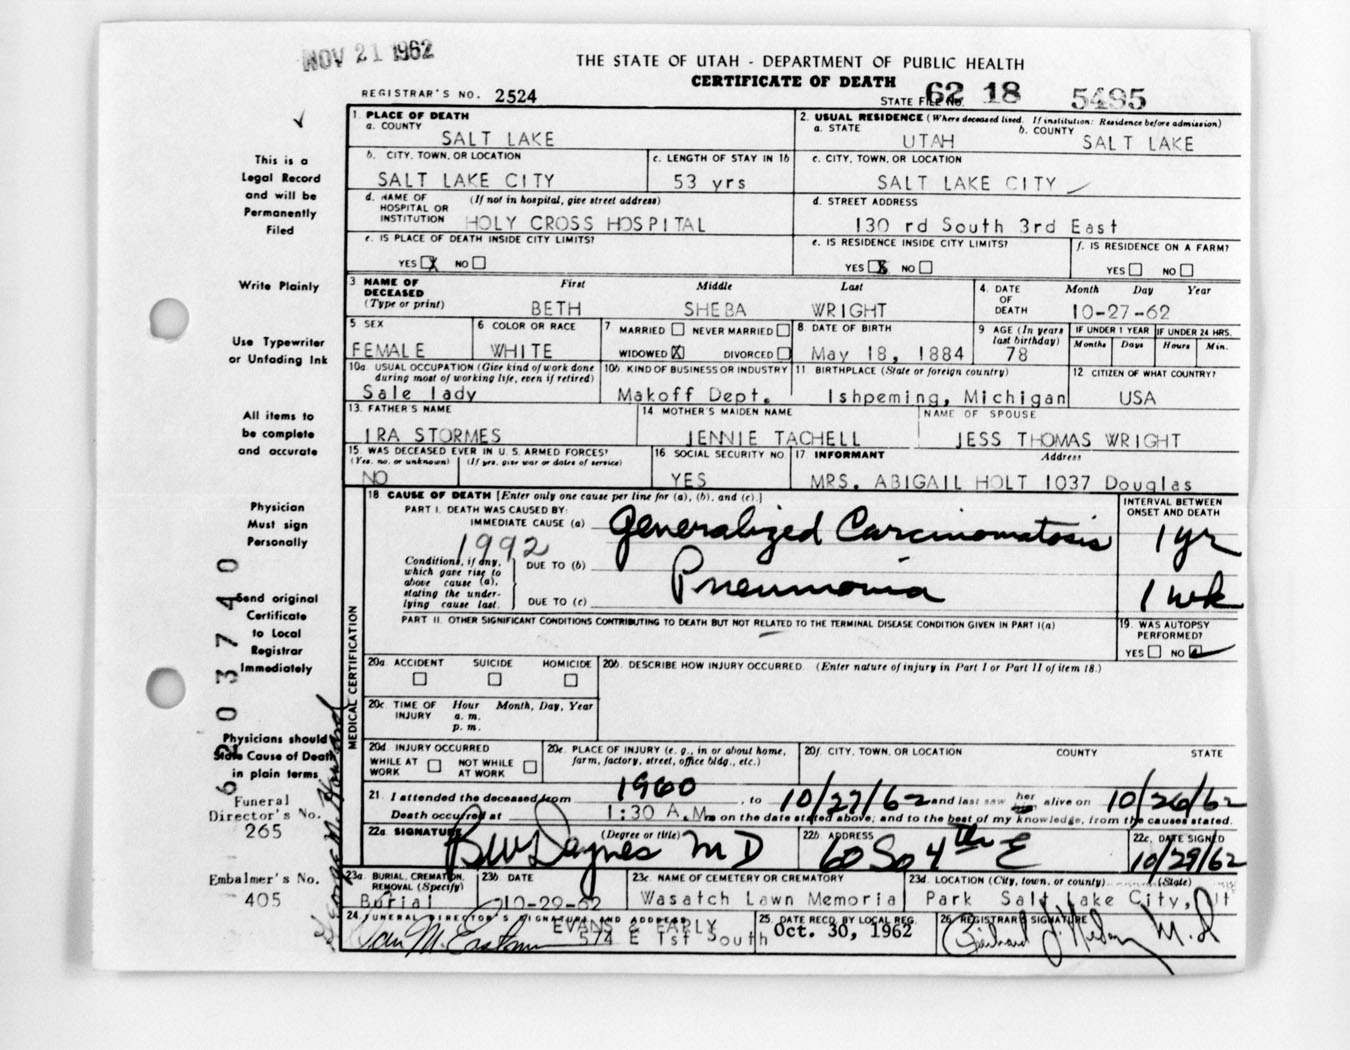 NOV 21 1962
THE STATE OF UTAH - DEPARTMENT OF PUBLIC HEALTH
CERTIFICATE OF DEATH
REGISTRAR'S NO. 2524
STATE FILE NO. 62 18 5495
This is a
Legal Record
and will be
Permanently
Filed
Write Plainly
Use Typewriter
or Unfading Ink
All items to
be complete
and accurate
Physician
Must sign
Personally
Send original
Certificate
to Local
Registrar
Immediately
Physicians should
State Cause of Death
in plain terms
Funeral
Director's No.
265
Embalmer's No.
405
62 037 40
1. PLACE OF DEATH
a. COUNTY
SALT LAKE
2. USUAL RESIDENCE (Where deceased lived. If institution: Residence before admission)
a. STATE UTAH b. COUNTY SALT LAKE
b. CITY, TOWN, OR LOCATION
SALT LAKE CITY
c. LENGTH OF STAY IN 1b
53 yrs
c. CITY, TOWN, OR LOCATION
SALT LAKE CITY
d. NAME OF HOSPITAL OR INSTITUTION (If not in hospital, give street address)
HOLY CROSS HOSPITAL
d. STREET ADDRESS
130 rd South 3rd East
e. IS PLACE OF DEATH INSIDE CITY LIMITS?
YES X NO
e. IS RESIDENCE INSIDE CITY LIMITS?
YES X NO
f. IS RESIDENCE ON A FARM?
YES NO
3. NAME OF DECEASED (Type or print)
First Middle Last
BETH SHEBA WRIGHT
4. DATE OF DEATH Month Day Year
10-27-62
5 SEX
FEMALE
6 COLOR OR RACE
WHITE
7 MARRIED NEVER MARRIED
WIDOWED X DIVORCED
8 DATE OF BIRTH
May 18, 1884
9 AGE (In years last birthday)
78
IF UNDER 1 YEAR Months Days
IF UNDER 24 HRS. Hours Min.
10a. USUAL OCCUPATION (Give kind of work done during most of working life, even if retired)
Sale lady
10b. KIND OF BUSINESS OR INDUSTRY
Makoff Dept.
11 BIRTHPLACE (State or foreign country)
Ishpeming, Michigan
12 CITIZEN OF WHAT COUNTRY?
USA
13. FATHER'S NAME
IRA STORMES
14 MOTHER'S MAIDEN NAME
JENNIE TACHELL
NAME OF SPOUSE
JESS THOMAS WRIGHT
15 WAS DECEASED EVER IN U. S. ARMED FORCES?
(Yes, no, or unknown) (If yes, give war or dates of service)
NO
16. SOCIAL SECURITY NO.
YES
17 INFORMANT Address
MRS. ABIGAIL HOLT 1037 Douglas
MEDICAL CERTIFICATION
18 CAUSE OF DEATH [Enter only one cause per line for (a), (b), and (c).]
INTERVAL BETWEEN ONSET AND DEATH
PART I. DEATH WAS CAUSED BY:
IMMEDIATE CAUSE (a) Generalized Carcinomatosis 1 yr
1992
Conditions, if any, which gave rise to above cause (a), stating the underlying cause last.
DUE TO (b) Pneumonia 1 wk
DUE TO (c)
PART II. OTHER SIGNIFICANT CONDITIONS CONTRIBUTING TO DEATH BUT NOT RELATED TO THE TERMINAL DISEASE CONDITION GIVEN IN PART I(a)
19. WAS AUTOPSY PERFORMED?
YES NO
20a. ACCIDENT SUICIDE HOMICIDE
20b. DESCRIBE HOW INJURY OCCURRED. (Enter nature of injury in Part I or Part II of item 18.)
20c. TIME OF INJURY Hour a. m. p. m. Month, Day, Year
20d. INJURY OCCURRED
WHILE AT WORK NOT WHILE AT WORK
20e. PLACE OF INJURY (e. g., in or about home, farm, factory, street, office bldg., etc.)
20f. CITY, TOWN, OR LOCATION COUNTY STATE
21. I attended the deceased from 1960, to 10/27/62 and last saw her him alive on 10/26/62
Death occurred at 1:30 A.M. m on the date stated above; and to the best of my knowledge, from the causes stated.
22a. SIGNATURE (Degree or title)
MD
22b. ADDRESS
60 So 4th E
22c. DATE SIGNED
10/29/62
23a. BURIAL, CREMATION, REMOVAL (Specify)
Burial
23b DATE
10-29-62
23c. NAME OF CEMETERY OR CREMATORY
Wasatch Lawn Memorial
23d. LOCATION (City, town, or county) (State)
Park Salt Lake City, Ut
24. FUNERAL DIRECTOR'S SIGNATURE AND ADDRESS
EVANS & EARLY
574 E 1st South
25. DATE RECD. BY LOCAL REG.
Oct. 30, 1962
26. REGISTRAR'S SIGNATURE
M.D